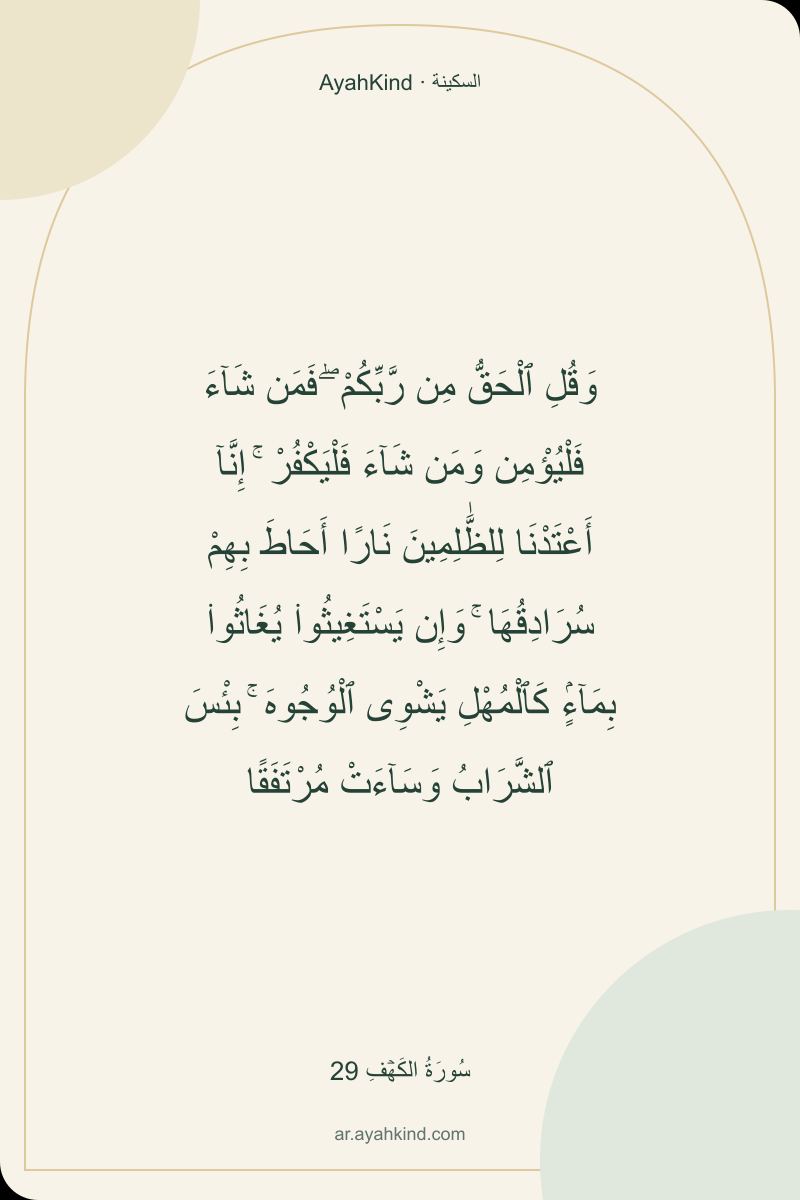 AyahKind · السكينة
وَقُلِ ٱلْحَقُّ مِن رَّبِّكُمْ ۖ فَمَن شَآءَ
فَلْيُؤْمِن وَمَن شَآءَ فَلْيَكْفُرْ ۚ إِنَّآ
أَعْتَدْنَا لِلظَّٰلِمِينَ نَارًا أَحَاطَ بِهِمْ
سُرَادِقُهَا ۚ وَإِن يَسْتَغِيثُوا۟ يُغَاثُوا۟
بِمَآءٍۢ كَٱلْمُهْلِ يَشْوِى ٱلْوُجُوهَ ۚ بِئْسَ
ٱلشَّرَابُ وَسَآءَتْ مُرْتَفَقًا
سُورَةُ الكَهۡفِ 29
ar.ayahkind.com